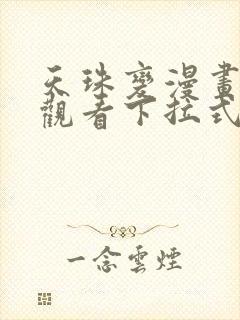 天珠變漫畫
觀看下拉式
一念雲煙